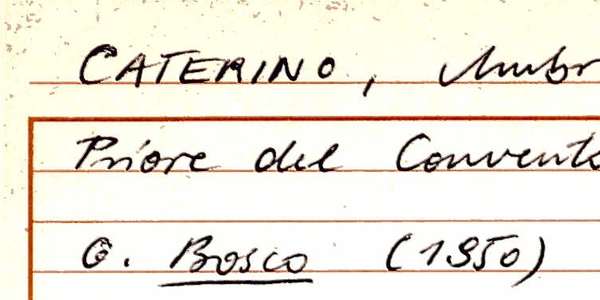 CATERINO, Umbr
Priore del Convento
G. Bosco (1950)